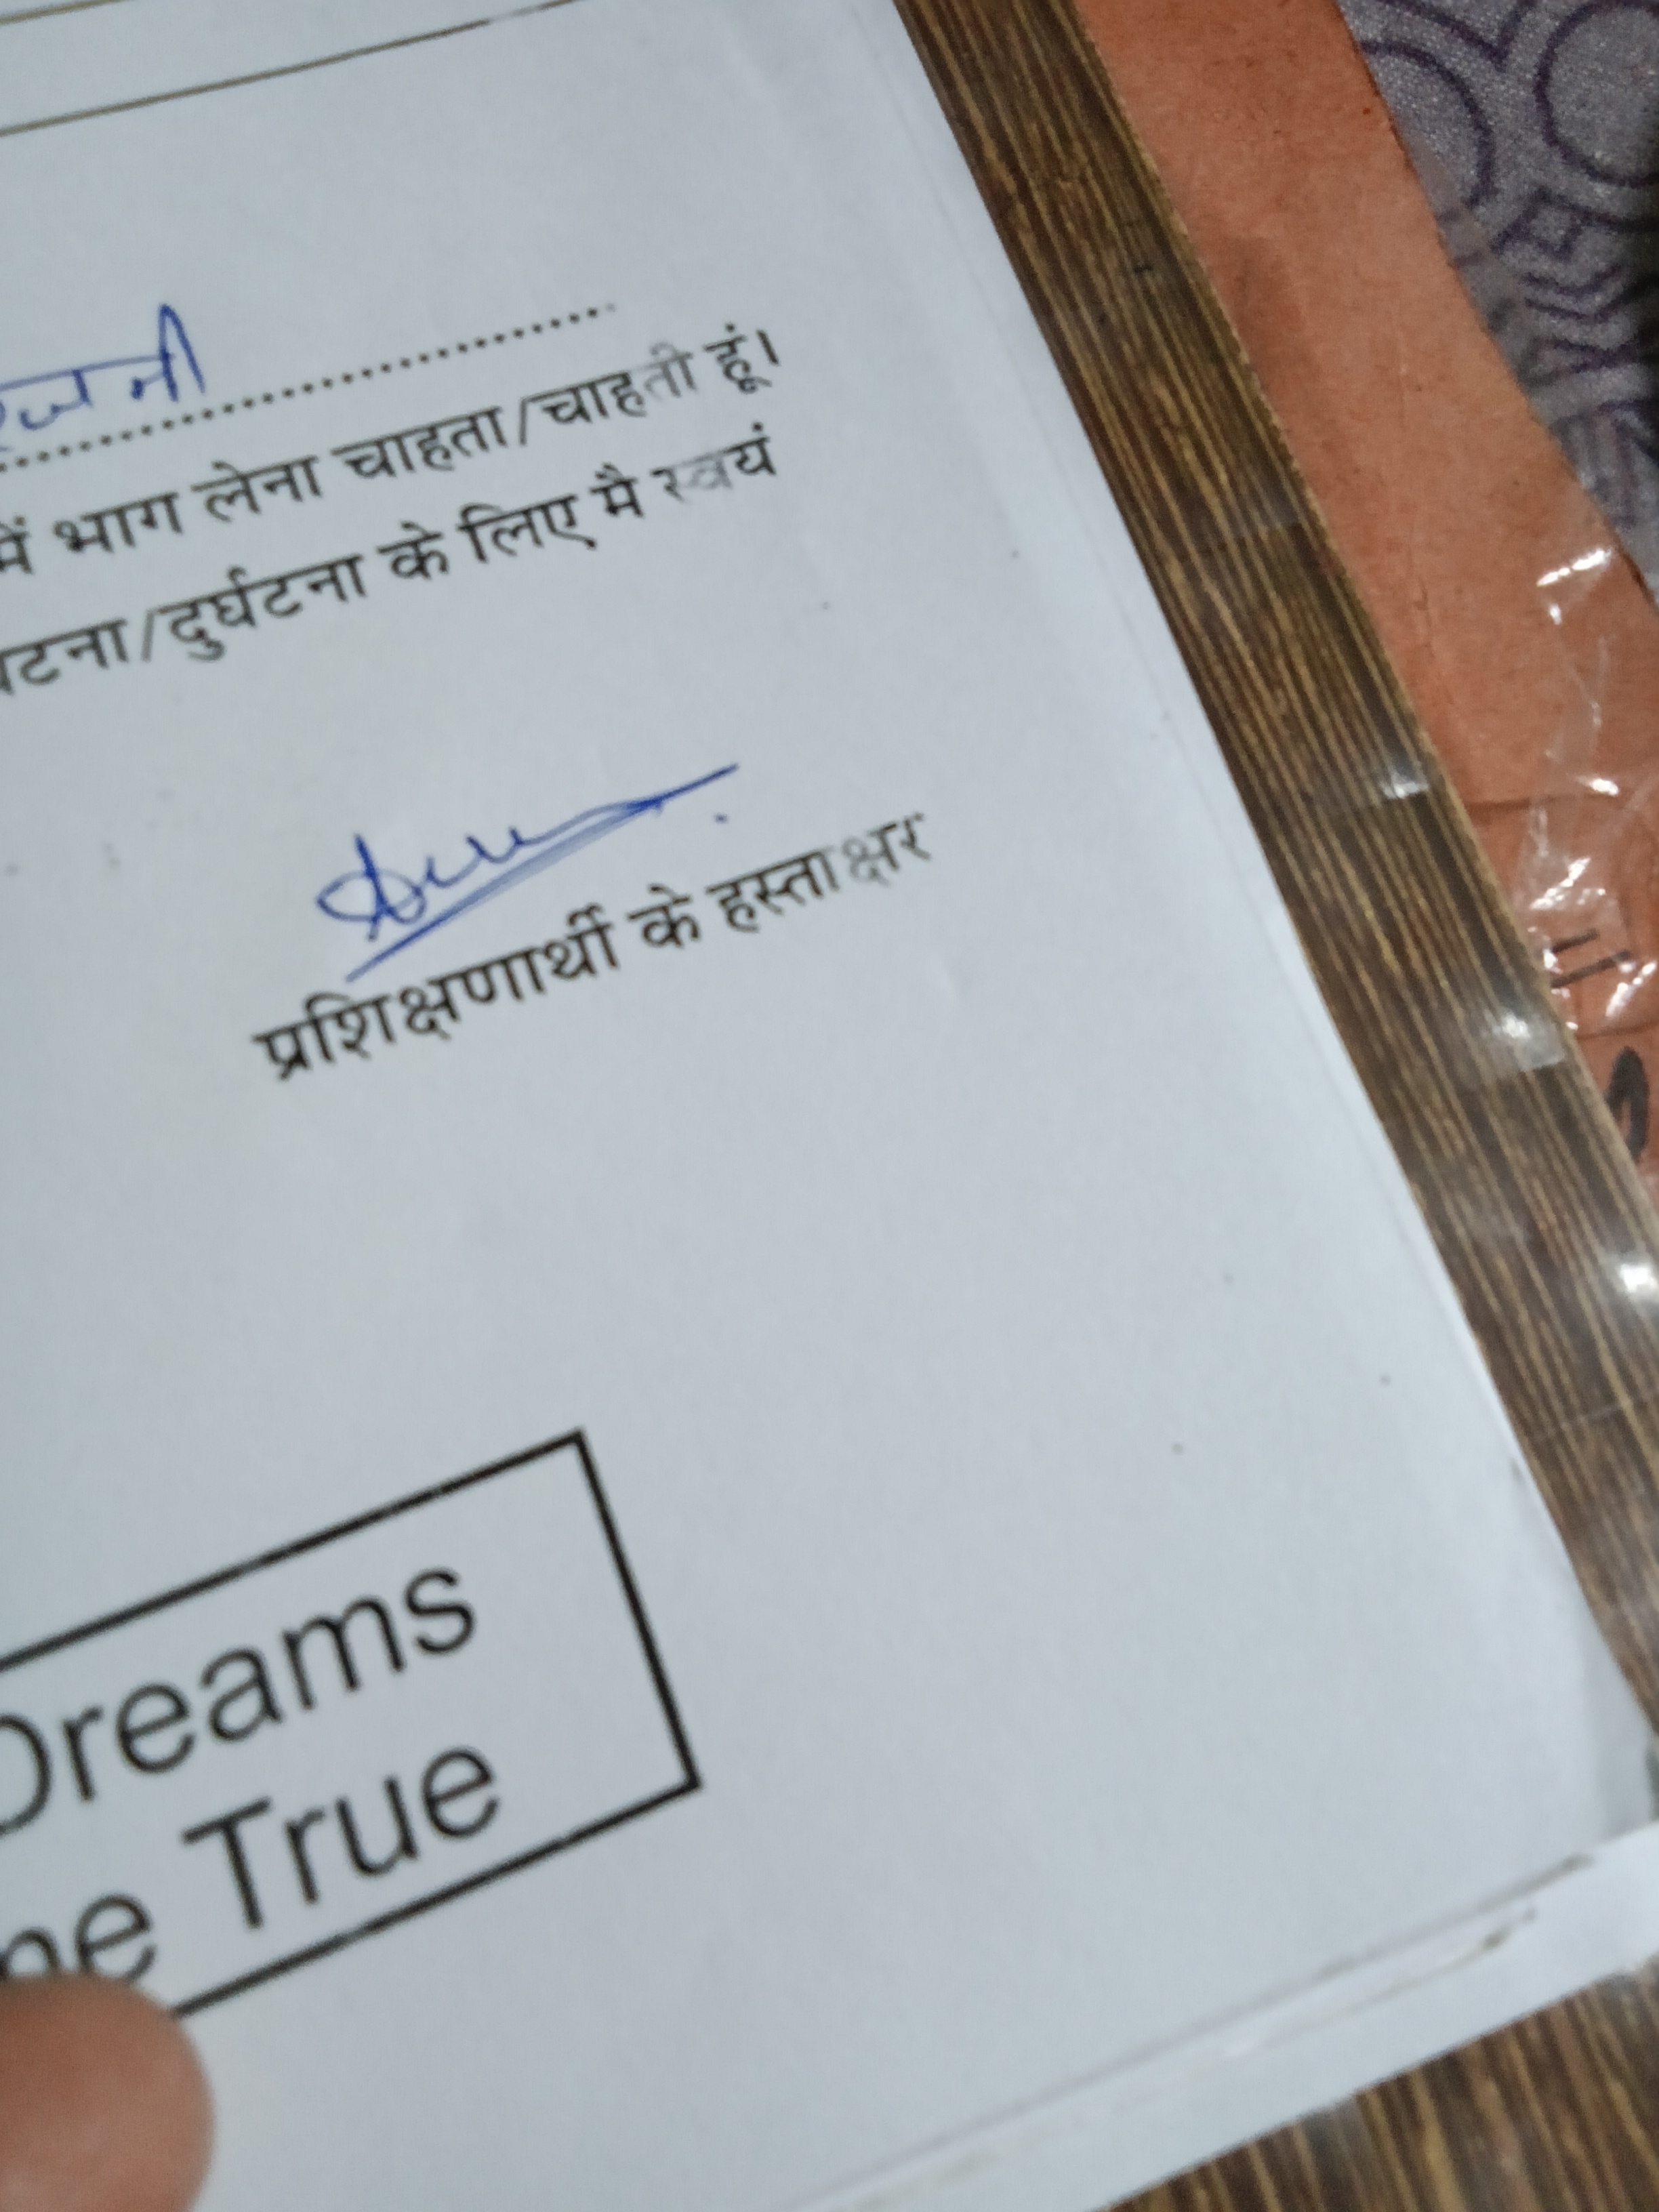 में भाग लेना चाहता/चाहती हूं।
घटना/दुर्घटना के लिए मै स्वयं
प्रशिक्षणार्थी के हस्ताक्षर
Dreams
True